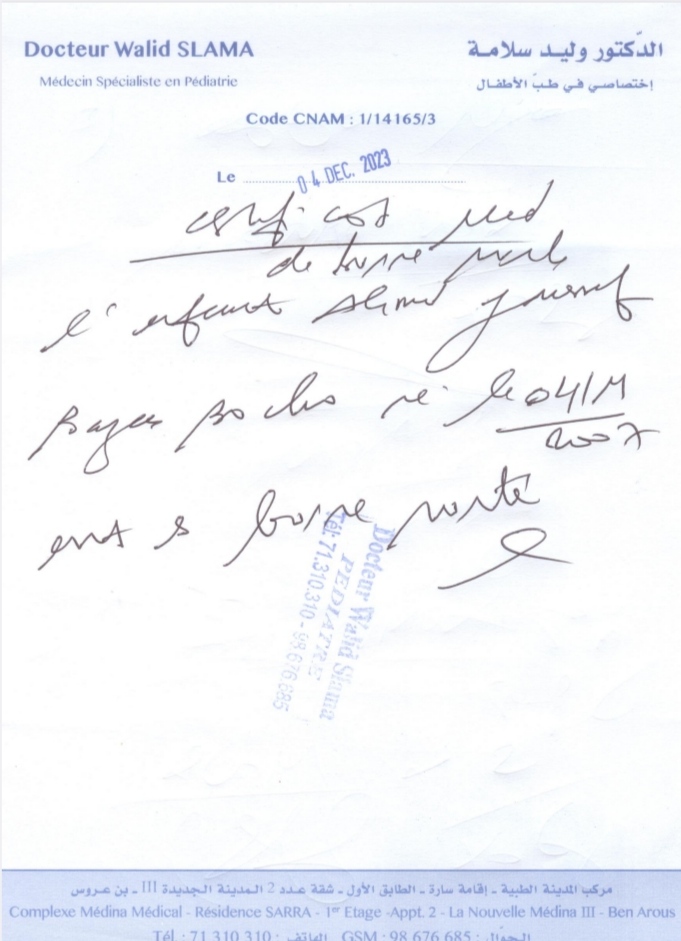 Docteur Walid SLAMA
الدكتور وليد سلامة
Médecin Spécialiste en Pédiatrie
إختصاصي في طبّ الأطفال
Code CNAM : 1/14165/3
Le 04 DEC. 2023
certificat med
de bonne santé
l'enfant Ahmed youssef
né le 04/11
2007
est bonne santé
Docteur Walid Slama
PEDIATRE
Tél: 71.310.310 - 98.676.685
مركب المدينة الطبية - إقامة سارة - الطابق الأول - شقة عدد 2 المدينة الجديدة III - بن عروس
Complexe Médina Médical - Résidence SARRA - 1er Etage -Appt. 2 - La Nouvelle Médina III - Ben Arous
Tél. : 71 310 310 : الهاتف GSM : 98 676 685 : الجوّال